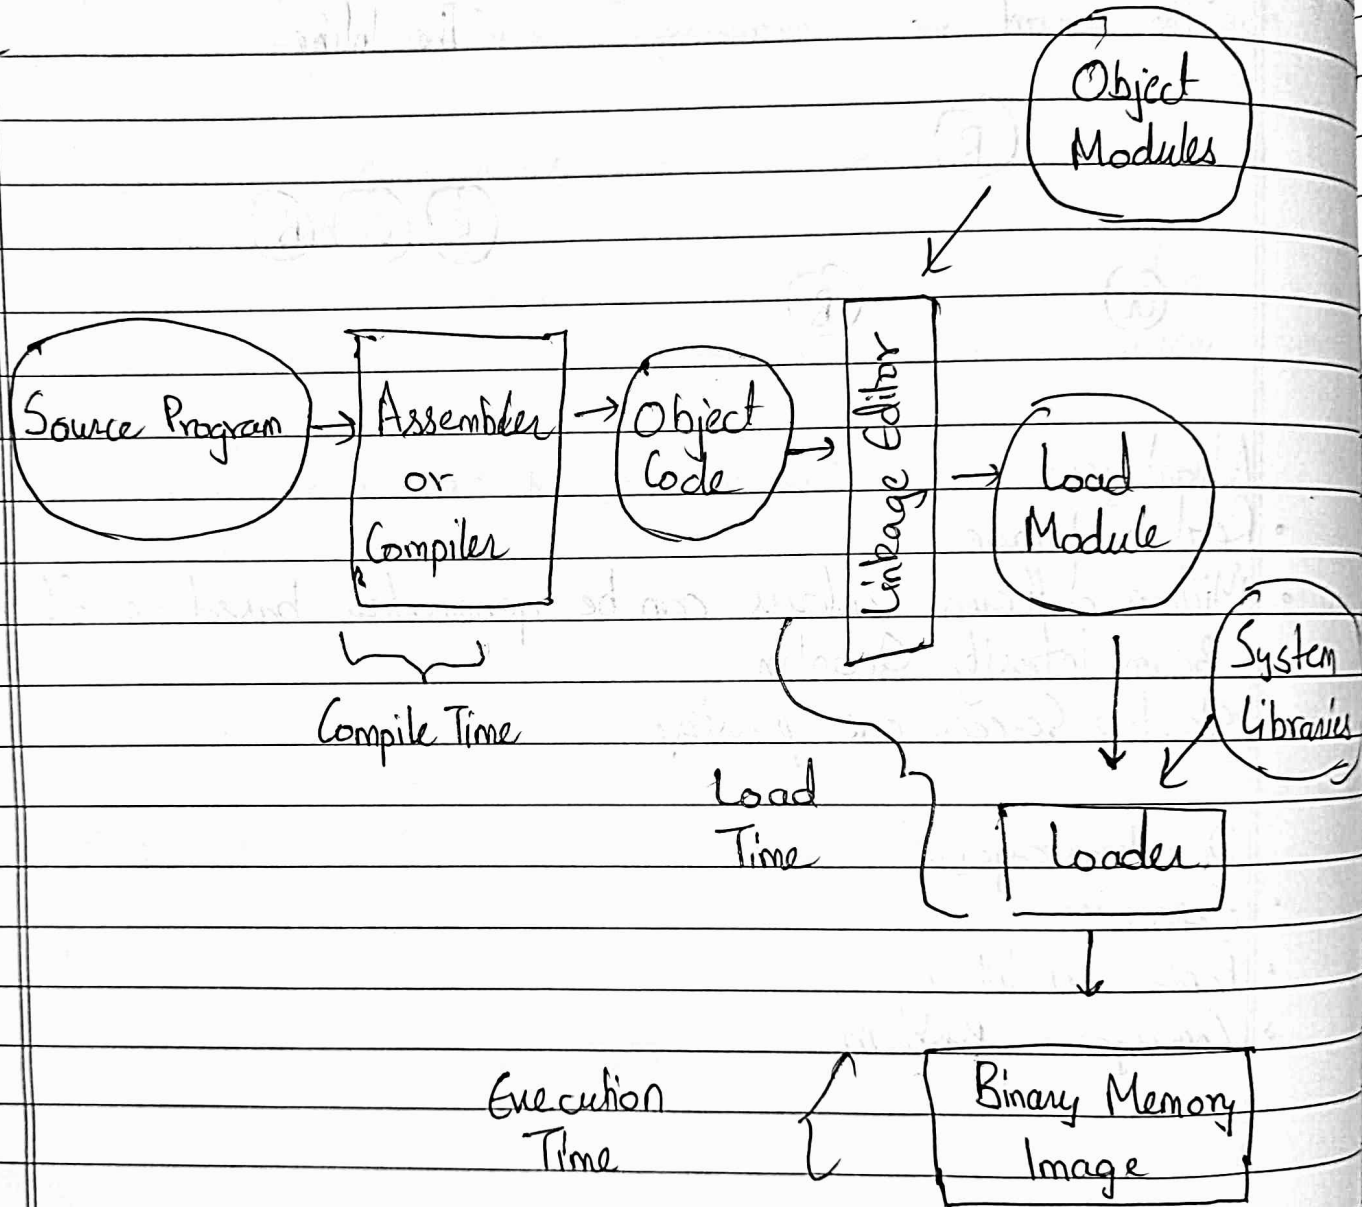 Object
Modules
Source Program
Assembler
or
Compiler
Object
Code
Linkage Editor
Load
Module
System
Libraries
Compile Time
Load
Time
Loader
Execution
Time
Binary Memory
Image